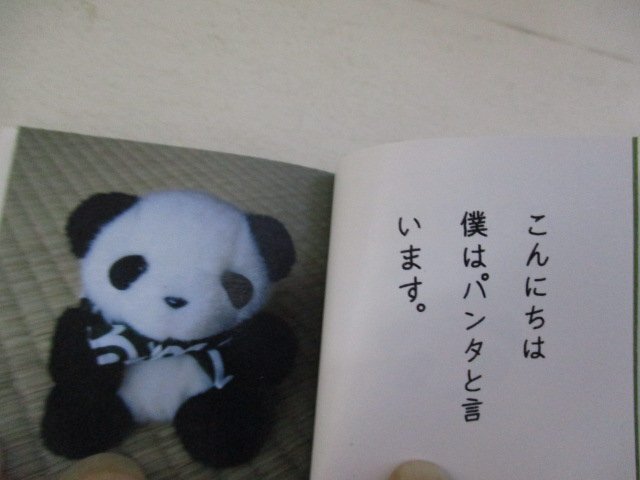 こんにちは
僕はパンタと言
います。